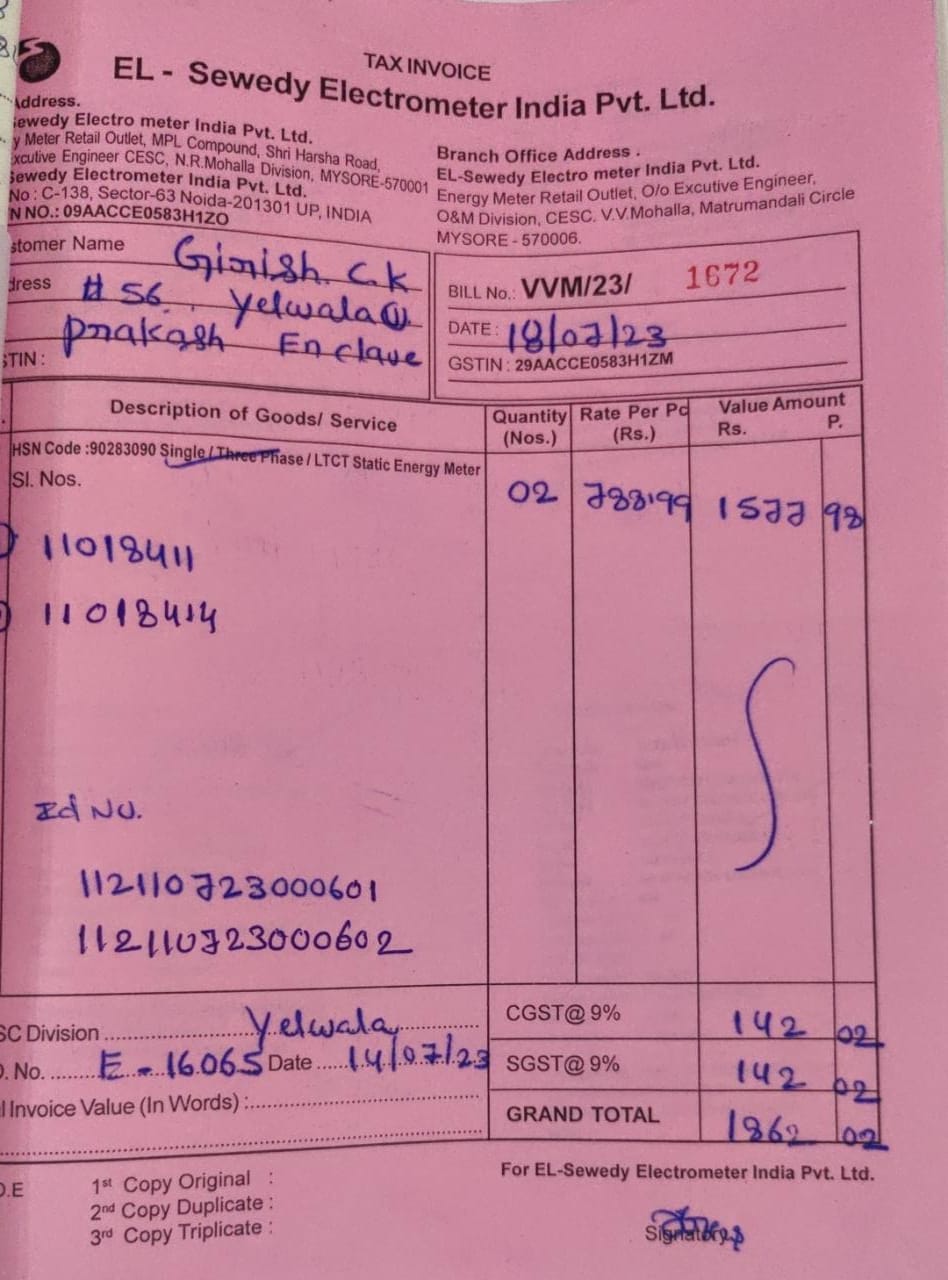 TAX INVOICE
EL - Sewedy Electrometer India Pvt. Ltd.
Address.
Sewedy Electro meter India Pvt. Ltd.
y Meter Retail Outlet, MPL Compound, Shri Harsha Road,
xcutive Engineer CESC, N.R.Mohalla Division, MYSORE-570001
Sewedy Electrometer India Pvt. Ltd.
No : C-138, Sector-63 Noida-201301 UP, INDIA
N NO.: 09AACCE0583H1ZO
Branch Office Address .
EL-Sewedy Electro meter India Pvt. Ltd.
Energy Meter Retail Outlet, O/o Excutive Engineer,
O&M Division, CESC. V.V.Mohalla, Matrumandali Circle
MYSORE - 570006.
stomer Name Girish. C.K
dress # 56, Yelwala
Prakash Enclave
STIN :
BILL No.: VVM/23/ 1672
DATE : 18/07/23
GSTIN : 29AACCE0583H1ZM
Description of Goods/ Service Quantity (Nos.) Rate Per Pc (Rs.) Value Amount Rs. P.
HSN Code :90283090 Single / Three Phase / LTCT Static Energy Meter
Sl. Nos.
02 788.99 1577 98
11018411
11018414
Id No.
112110723000601
112110723000602
SC Division Yelwala
CGST@ 9% 142 02
. No. E - 16065 Date 14/07/23
SGST@ 9% 142 02
l Invoice Value (In Words) :
GRAND TOTAL 1862 02
For EL-Sewedy Electrometer India Pvt. Ltd.
O.E
1st Copy Original :
2nd Copy Duplicate :
3rd Copy Triplicate :
Signatory